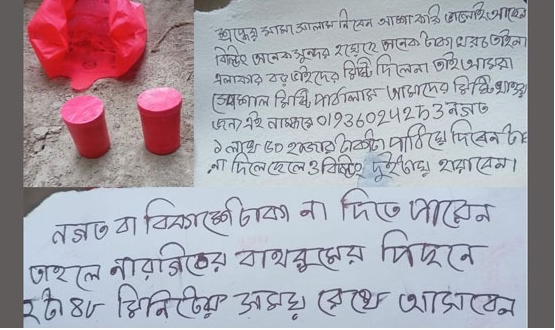 শ্রদ্ধেয় ভাই সালাম নিবেন আশা করি ভালোই আছেন
বিল্ডিং অনেক সুন্দর হয়েছে অনেক টাকা খরচ তাইনা
এলাকার বড় ভাইদের মিষ্টি দিলেনা তাই আমরা
স্পেশাল মিষ্টি পাঠালাম আমাদের মিষ্টি খাওয়ার
জন্য এই নাম্বারে 01936024253 নগত
১ লাখ ৫০ হাজার টাকা পাঠিয়ে দিবেন টাকা
না দিলে ছেলে ও বিল্ডিং দুইটায় হারাবেন।
নগত বা বিকাশে টাকা না দিতে পারেন
তাহলে নারজিতের বাথরুমের পিছনে
২টা ৪৮ মিনিটের সময় রেখে আসবেন